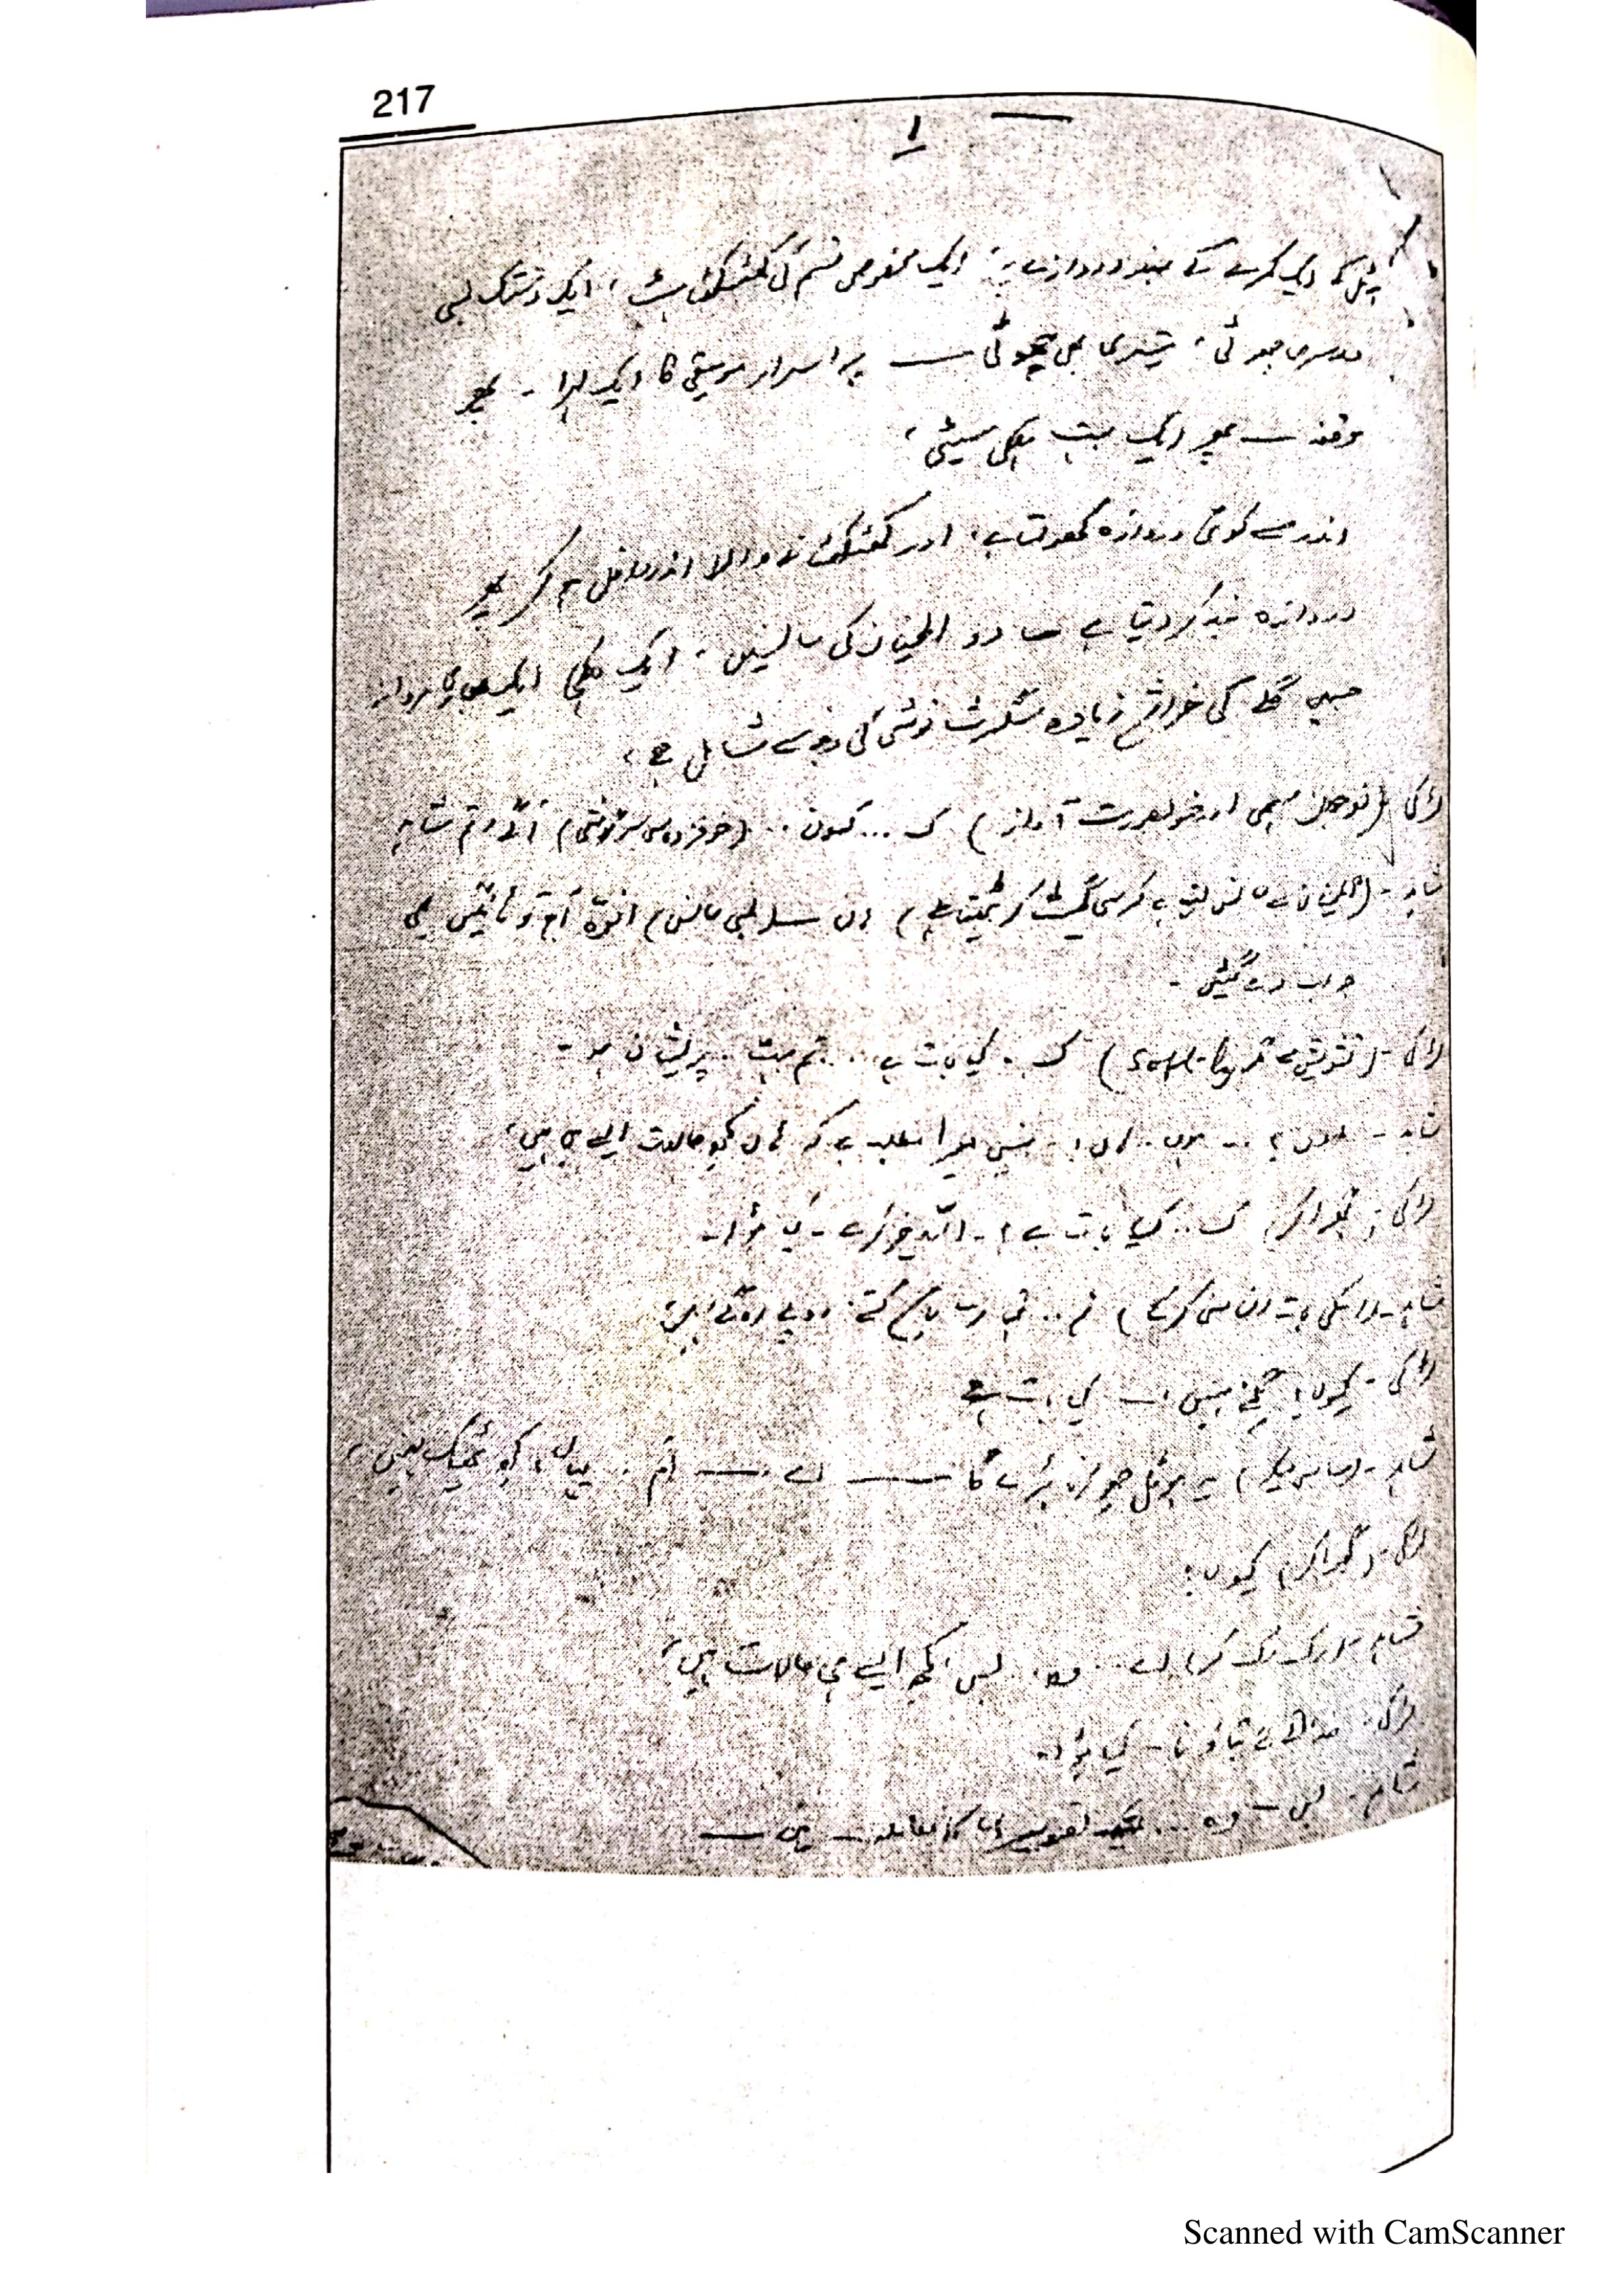 217
۱
ایک کمرے کے بند دروازے پر ایک مخصوص قسم کی کھٹکھٹاہٹ، ایک دستک لمبی
دوسری چھوٹی، تیسری بھی چھوٹی — پر اسرار موسیقی کا ایک لہرا - پھر
وقفہ — پھر ایک بہت ہلکی سیٹی،
اندر سے کوئی دروازہ کھولتا ہے، اور کھٹکھٹانے والا اندر داخل ہو کر پھر
دروازہ بند کر دیتا ہے — دو اطمینان کی سانسیں، ایک ہلکی ایک بھاری مردانہ
جسمیں گلے کی خراش زیادہ سگرٹ نوشی کی وجہ سے شامل ہے،
لڑکی (نوجوان سہمی اور خوبصورت آواز) ک... کون .. (خوفزدہ سی سرگوشی) آگئے تم شاہد
شاہد - (اطمینان سے سانس لیتا ہے کرسی گھسیٹ کر بیٹھتا ہے) لمبی سانس) افوہ آج تو ٹانگیں بھی
جواب دے گئیں -
لڑکی - (تشویش سے soft) ک . کیا بات ہے ... تم بہت .. پریشان ہو -
شاہد - .. ہوں .. ہاں ! - نہیں میرا مطلب ہے کہ ہاں کچھ حالات ایسے ہی ہیں،
لڑکی - گھبرا کر) ک .. کیا بات ہے ؟ - اللہ خیر کرے - کیا ہوا -
شاہد - لڑکی کی بات ان سنی کرکے) تم .. تمہارے پاس کتنے روپے ہیں،
لڑکی - کیوں ؟ کچھ نہیں — کیا بات ہے
شاہد - یہ ہوٹل چھوڑنا پڑے گا — تم .. یہاں ٹھیک نہیں،
لڑکی - (گھبرا کر) کیوں ؟
شاہد - رک رک کر) .. وہ .. بس کچھ ایسے ہی حالات ہیں،
لڑکی - خدا کے لئے بتاؤ نا - کیا ہوا -
شاہد - بس — وہ ...
Scanned with CamScanner